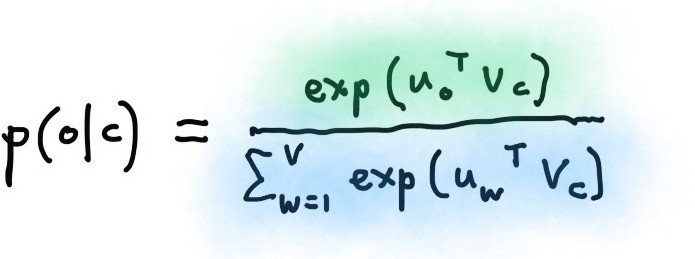 p(o|c) = exp(u_o^T v_c)
∑_{w=1}^V exp(u_w^T v_c)